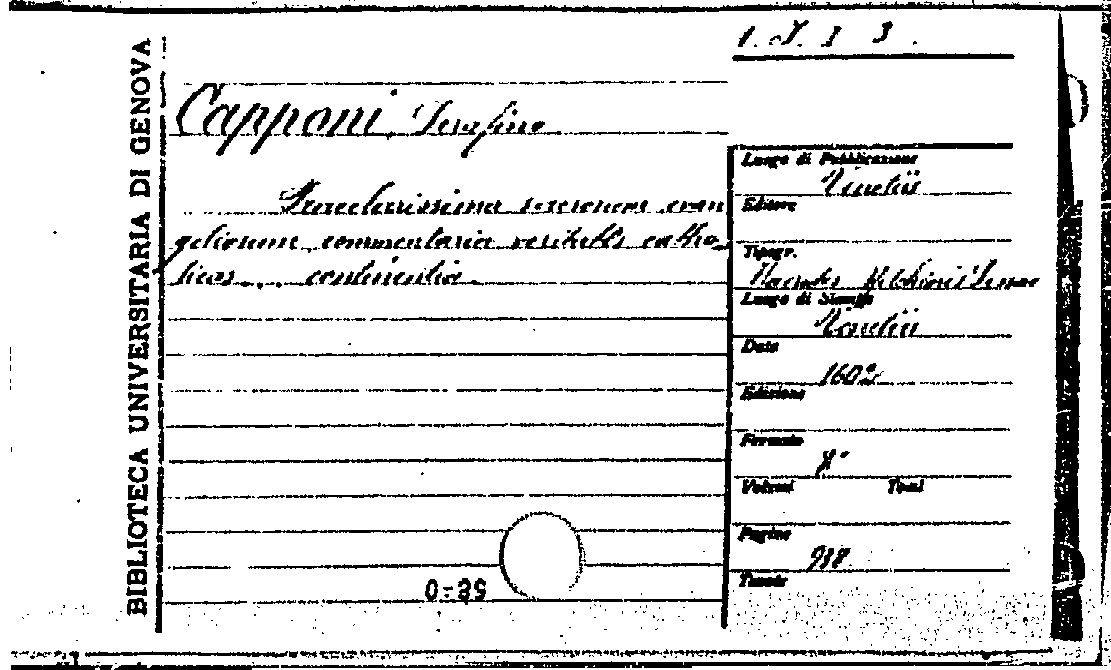 BIBLIOTECA UNIVERSITARIA DI GENOVA
1. J. I 3.
Capponi, Serafino
Praeclarissima sacrorum evan
geliorum commentaria veritates catho
licas... continentia
Luogo di Pubblicazione
Venetiis
Editore
Tipogr.
Luogo di Stampa
Venetiis
Data
1602
Edizione
Formato
8°
Volumi Tomi
Pagine
918
0-39